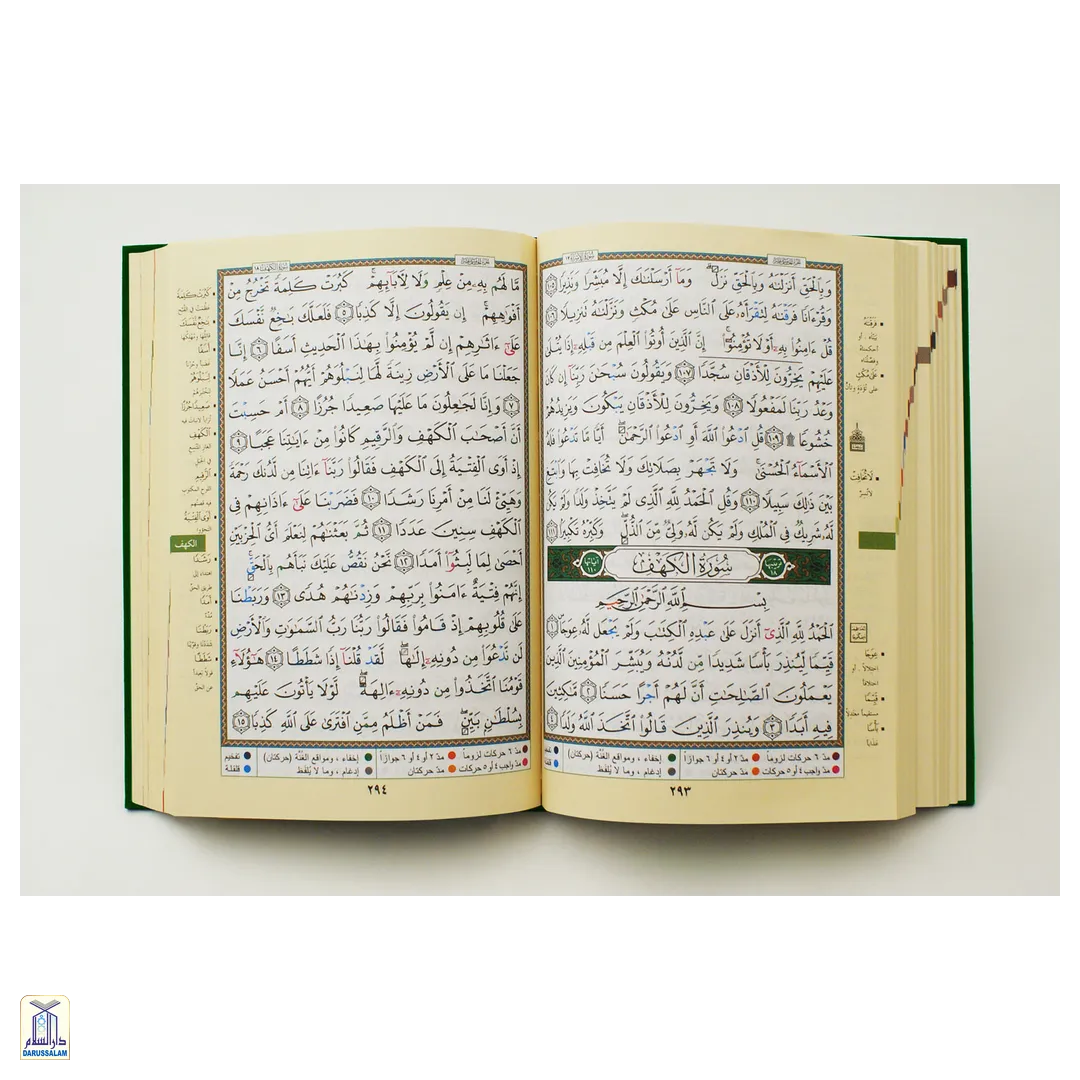 وَبِالْحَقِّ أَنزَلْنَاهُ وَبِالْحَقِّ نَزَلَ ۗ وَمَا أَرْسَلْنَاكَ إِلَّا مُبَشِّرًا وَنَذِيرًا ١٠٥
وَقُرْءَانًا فَرَقْنَاهُ لِتَقْرَأَهُ عَلَى النَّاسِ عَلَىٰ مُكْثٍ وَنَزَّلْنَاهُ تَنزِيلًا ١٠٦
قُلْ ءَامِنُوا بِهِ أَوْ لَا تُؤْمِنُوا ۚ إِنَّ الَّذِينَ أُوتُوا الْعِلْمَ مِن قَبْلِهِ إِذَا يُتْلَىٰ
عَلَيْهِمْ يَخِرُّونَ لِلْأَذْقَانِ سُجَّدًا ١٠٧ وَيَقُولُونَ سُبْحَانَ رَبِّنَا إِن كَانَ
وَعْدُ رَبِّنَا لَمَفْعُولًا ١٠٨ وَيَخِرُّونَ لِلْأَذْقَانِ يَبْكُونَ وَيَزِيدُهُمْ
خُشُوعًا ۩ ١٠٩ قُلِ ادْعُوا اللَّهَ أَوِ ادْعُوا الرَّحْمَٰنَ ۖ أَيًّا مَّا تَدْعُوا فَلَهُ
الْأَسْمَاءُ الْحُسْنَىٰ ۚ وَلَا تَجْهَرْ بِصَلَاتِكَ وَلَا تُخَافِتْ بِهَا وَابْتَغِ
بَيْنَ ذَٰلِكَ سَبِيلًا ١١٠ وَقُلِ الْحَمْدُ لِلَّهِ الَّذِي لَمْ يَتَّخِذْ وَلَدًا وَلَمْ يَكُن
لَّهُ شَرِيكٌ فِي الْمُلْكِ وَلَمْ يَكُن لَّهُ وَلِيٌّ مِّنَ الذُّلِّ ۖ وَكَبِّرْهُ تَكْبِيرًا ١١١
ترتيبها ١٨ سُورَةُ الْكَهْفِ آياتها ١١٠
بِسْمِ اللَّهِ الرَّحْمَٰنِ الرَّحِيمِ
الْحَمْدُ لِلَّهِ الَّذِي أَنزَلَ عَلَىٰ عَبْدِهِ الْكِتَابَ وَلَمْ يَجْعَل لَّهُ عِوَجًا ١
قَيِّمًا لِّيُنذِرَ بَأْسًا شَدِيدًا مِّن لَّدُنْهُ وَيُبَشِّرَ الْمُؤْمِنِينَ الَّذِينَ
يَعْمَلُونَ الصَّالِحَاتِ أَنَّ لَهُمْ أَجْرًا حَسَنًا ٢ مَّاكِثِينَ
فِيهِ أَبَدًا ٣ وَيُنذِرَ الَّذِينَ قَالُوا اتَّخَذَ اللَّهُ وَلَدًا ٤
مدّ ٦ حركات لزوماً مدّ ٢ أو ٤ أو ٦ جوازاً إخفاء ، ومواقع الغُنَّة (حركتان)
مدّ واجب ٤ أو ٥ حركات مدّ حركتان إدغام ، وما لا يُلفَظ
٢٩٣
فَرَقْنَاهُ
عَلَىٰ مُكْثٍ
لَا تُخَافِتْ
عِوَجًا
قَيِّمًا
بَأْسًا
مَّا لَهُم بِهِ مِنْ عِلْمٍ وَلَا لِآبَائِهِمْ ۚ كَبُرَتْ كَلِمَةً تَخْرُجُ مِنْ
أَفْوَاهِهِمْ ۚ إِن يَقُولُونَ إِلَّا كَذِبًا ٥ فَلَعَلَّكَ بَاخِعٌ نَّفْسَكَ
عَلَىٰ ءَاثَارِهِمْ إِن لَّمْ يُؤْمِنُوا بِهَٰذَا الْحَدِيثِ أَسَفًا ٦ إِنَّا
جَعَلْنَا مَا عَلَى الْأَرْضِ زِينَةً لَّهَا لِنَبْلُوَهُمْ أَيُّهُمْ أَحْسَنُ عَمَلًا
٧ وَإِنَّا لَجَاعِلُونَ مَا عَلَيْهَا صَعِيدًا جُرُزًا ٨ أَمْ حَسِبْتَ
أَنَّ أَصْحَابَ الْكَهْفِ وَالرَّقِيمِ كَانُوا مِنْ ءَايَاتِنَا عَجَبًا ٩
إِذْ أَوَى الْفِتْيَةُ إِلَى الْكَهْفِ فَقَالُوا رَبَّنَا ءَاتِنَا مِن لَّدُنكَ رَحْمَةً
وَهَيِّئْ لَنَا مِنْ أَمْرِنَا رَشَدًا ١٠ فَضَرَبْنَا عَلَىٰ ءَاذَانِهِمْ فِي
الْكَهْفِ سِنِينَ عَدَدًا ١١ ثُمَّ بَعَثْنَاهُمْ لِنَعْلَمَ أَيُّ الْحِزْبَيْنِ
أَحْصَىٰ لِمَا لَبِثُوا أَمَدًا ١٢ نَّحْنُ نَقُصُّ عَلَيْكَ نَبَأَهُم بِالْحَقِّ ۚ
إِنَّهُمْ فِتْيَةٌ ءَامَنُوا بِرَبِّهِمْ وَزِدْنَاهُمْ هُدًى ١٣ وَرَبَطْنَا
عَلَىٰ قُلُوبِهِمْ إِذْ قَامُوا فَقَالُوا رَبُّنَا رَبُّ السَّمَاوَاتِ وَالْأَرْضِ
لَن نَّدْعُوَا مِن دُونِهِ إِلَٰهًا ۖ لَّقَدْ قُلْنَا إِذًا شَطَطًا ١٤ هَٰؤُلَاءِ
قَوْمُنَا اتَّخَذُوا مِن دُونِهِ ءَالِهَةً ۖ لَّوْلَا يَأْتُونَ عَلَيْهِم
بِسُلْطَانٍ بَيِّنٍ ۖ فَمَنْ أَظْلَمُ مِمَّنِ افْتَرَىٰ عَلَى اللَّهِ كَذِبًا ١٥
مدّ ٦ حركات لزوماً مدّ ٢ أو ٤ أو ٦ جوازاً إخفاء ، ومواقع الغُنَّة (حركتان) تفخيم
مدّ واجب ٤ أو ٥ حركات مدّ حركتان إدغام ، وما لا يُلفَظ قلقلة
٢٩٤
كَبُرَتْ كَلِمَةً
بَاخِعٌ نَّفْسَكَ
أَسَفًا
لِنَبْلُوَهُمْ
صَعِيدًا جُرُزًا
الْكَهْفِ
الرَّقِيمِ
أَوَى الْفِتْيَةُ
الكهف
رَشَدًا
أَمَدًا
رَبَطْنَا
شَطَطًا
دار السلام
DARUSSALAM